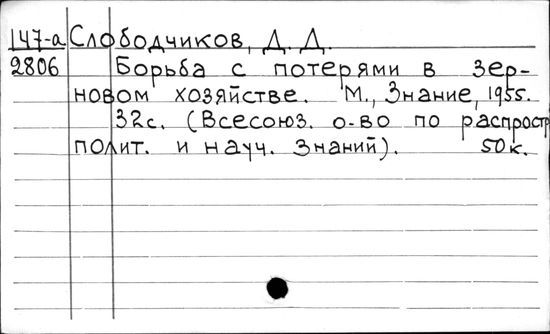 147-а Слободчиков, Д. Д.
2806 Борьба с потерями в зер-
новом хозяйстве. М., Знание, 1955.
32с. (Всесоюз. о-во по распростр
полит. и науч. знаний). 50к.